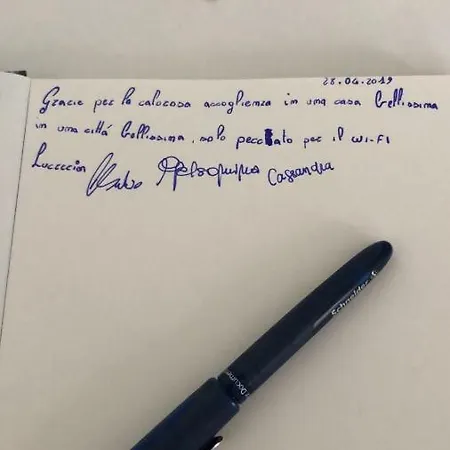 28.04.2019
Grazie per la calorosa accoglienza in una casa bellissima
in una città bellissima, solo peccato per il WI-FI
Cassandra
Schneider
Docume